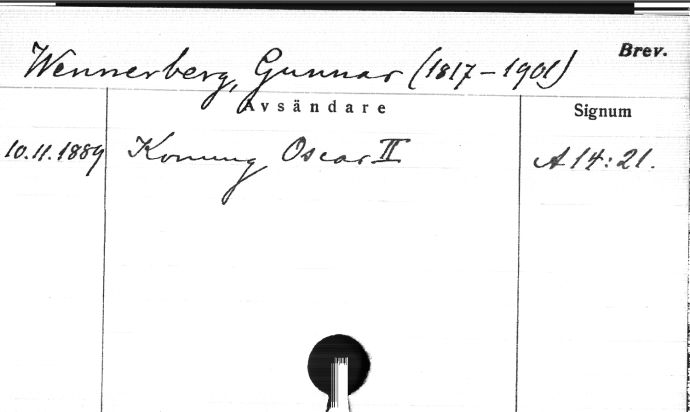 Brev.
Wennerberg, Gunnar (1817-1901)
Avsändare Signum
10.11.1889 Konung Oscar II A 14:21.